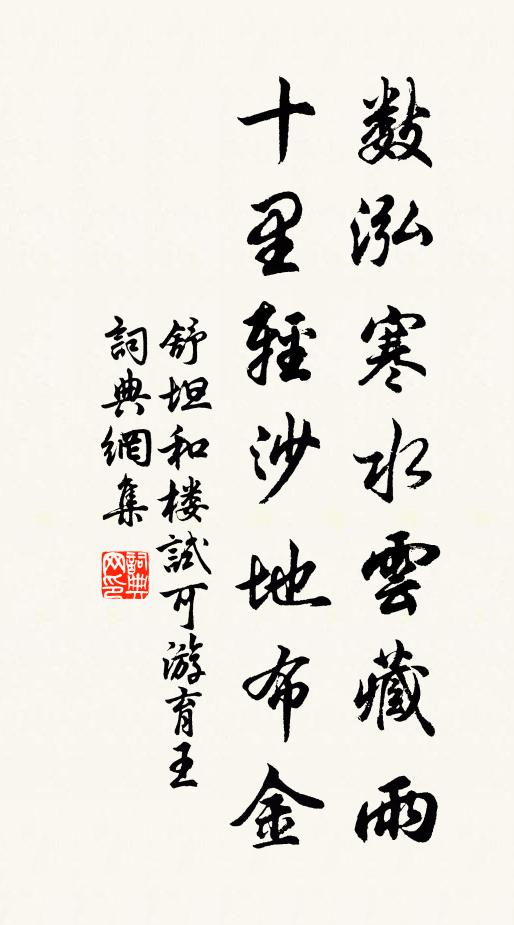 數泓寒水雲藏雨
十里輕沙地布金
舒坦和楼試可游育王
詞典網集
詞典
网印